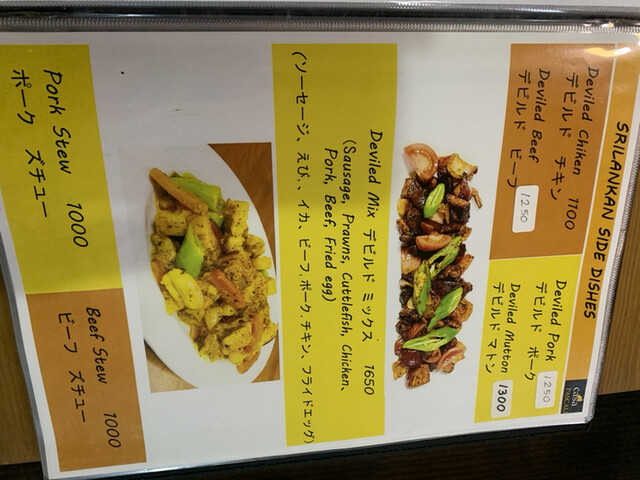 SRILANKAN SIDE DISHES
Deviled Chiken 1100
デビルド チキン
Deviled Beef
デビルド ビーフ 1250
Deviled Pork
デビルド ポーク 1250
Deviled Mutton
デビルド マトン 1300
Deviled Mix デビルド ミックス 1650
(Sausage, Prawns, Cuttlefish, Chicken,
Pork, Beef, Fried egg)
(ソーセージ、えび、、イカ、ビーフ、ポーク、チキン、フライドエッグ)
Pork Stew 1000
ポーク ズチュー
Beef Stew 1000
ビーフ ズチュー